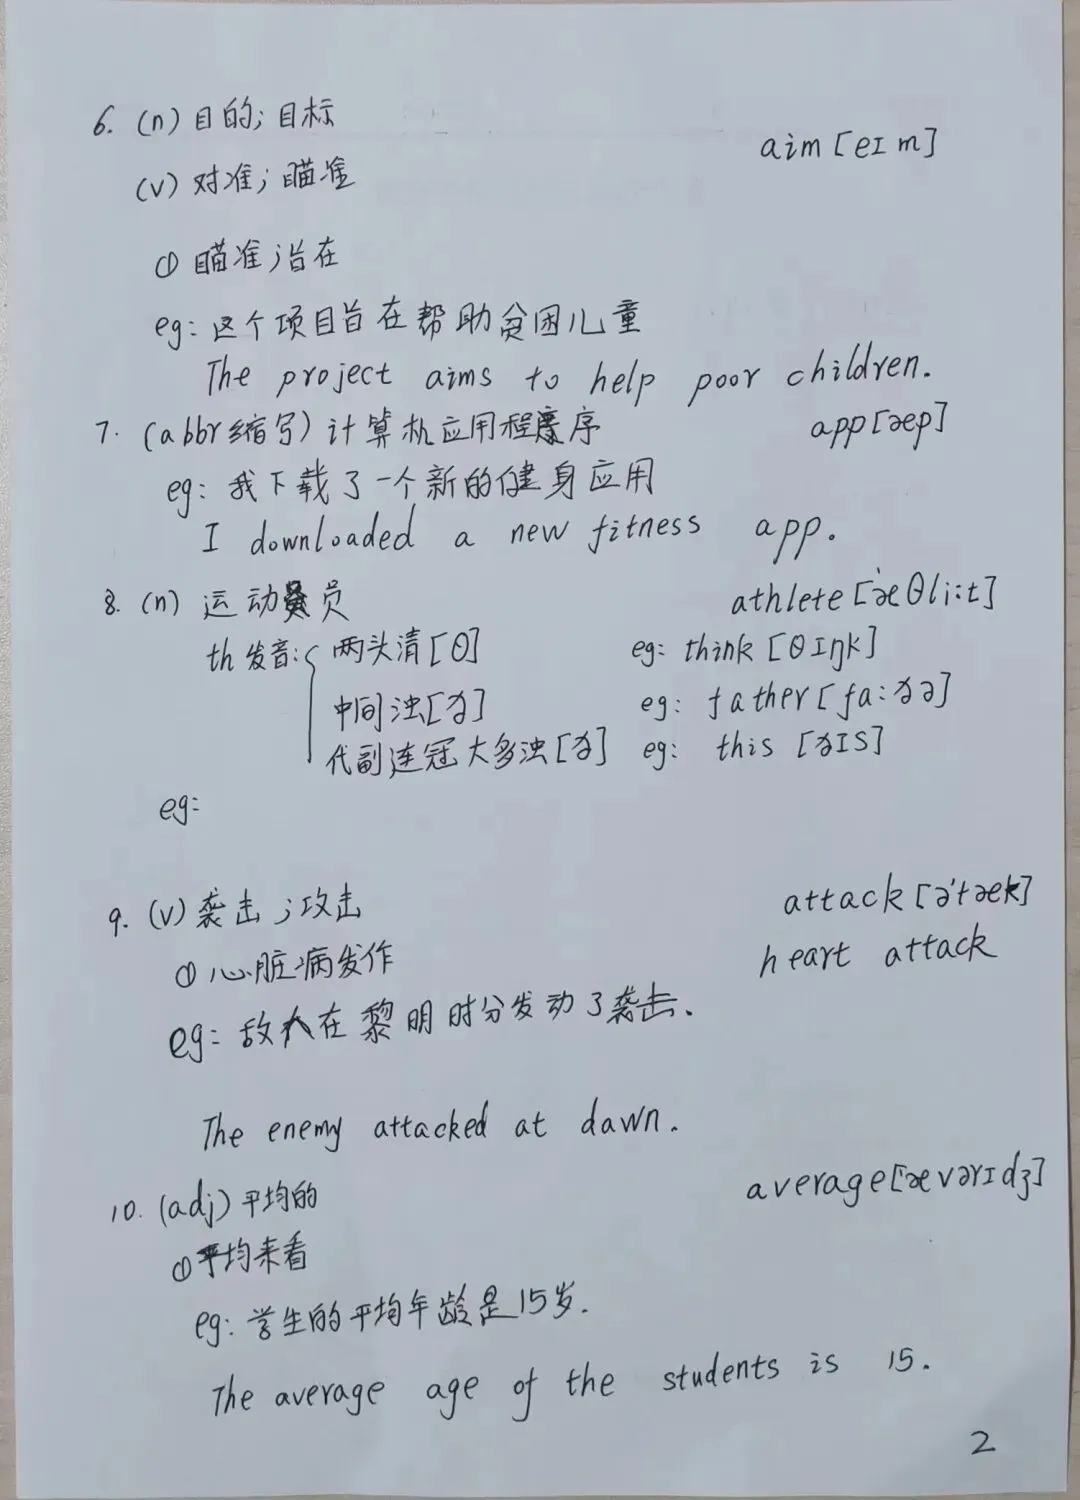 6. (n) 目的; 目标 aim [eɪm]
(v) 对准; 瞄准
① 瞄准; 旨在
eg: 这个项目旨在帮助贫困儿童
The project aims to help poor children.
7. (abbr缩写) 计算机应用程序 app [æp]
eg: 我下载了一个新的健身应用
I downloaded a new fitness app.
8. (n) 运动员 athlete ['æθli:t]
th发音: 两头清[θ] eg: think [θɪŋk]
中间浊[ð] eg: father [fa:ðə]
代副连冠大多浊[ð] eg: this [ðɪs]
eg:
9. (v) 袭击; 攻击 attack [ə'tæk]
① 心脏病发作 heart attack
eg: 敌人在黎明时分发动了袭击.
The enemy attacked at dawn.
10. (adj) 平均的 average ['ævərɪdʒ]
① 平均来看
eg: 学生的平均年龄是15岁.
The average age of the students is 15.
2